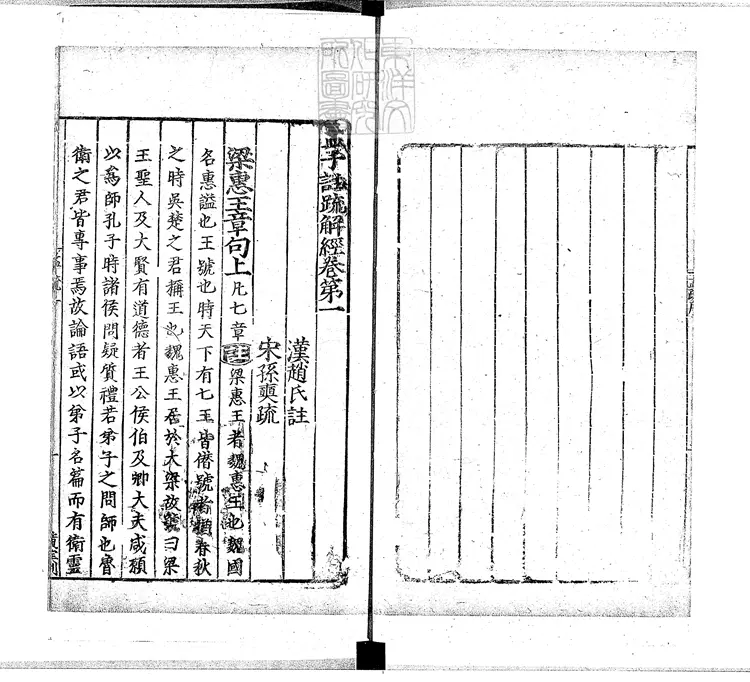 孟子註疏解經卷第一
漢趙氏註
宋孫奭疏
梁惠王章句上 凡七章 註 梁惠王者魏惠王也魏國
名惠謚也王號也時天下有七王皆僭號者猶春秋
之時吳楚之君稱王也魏惠王居於大梁故號曰梁
王聖人及大賢有道德者王公侯伯及卿大夫咸願
以爲師孔子時諸侯問疑質禮若弟子之問師也魯
衛之君皆專事焉故論語或以弟子名篇而有衛靈